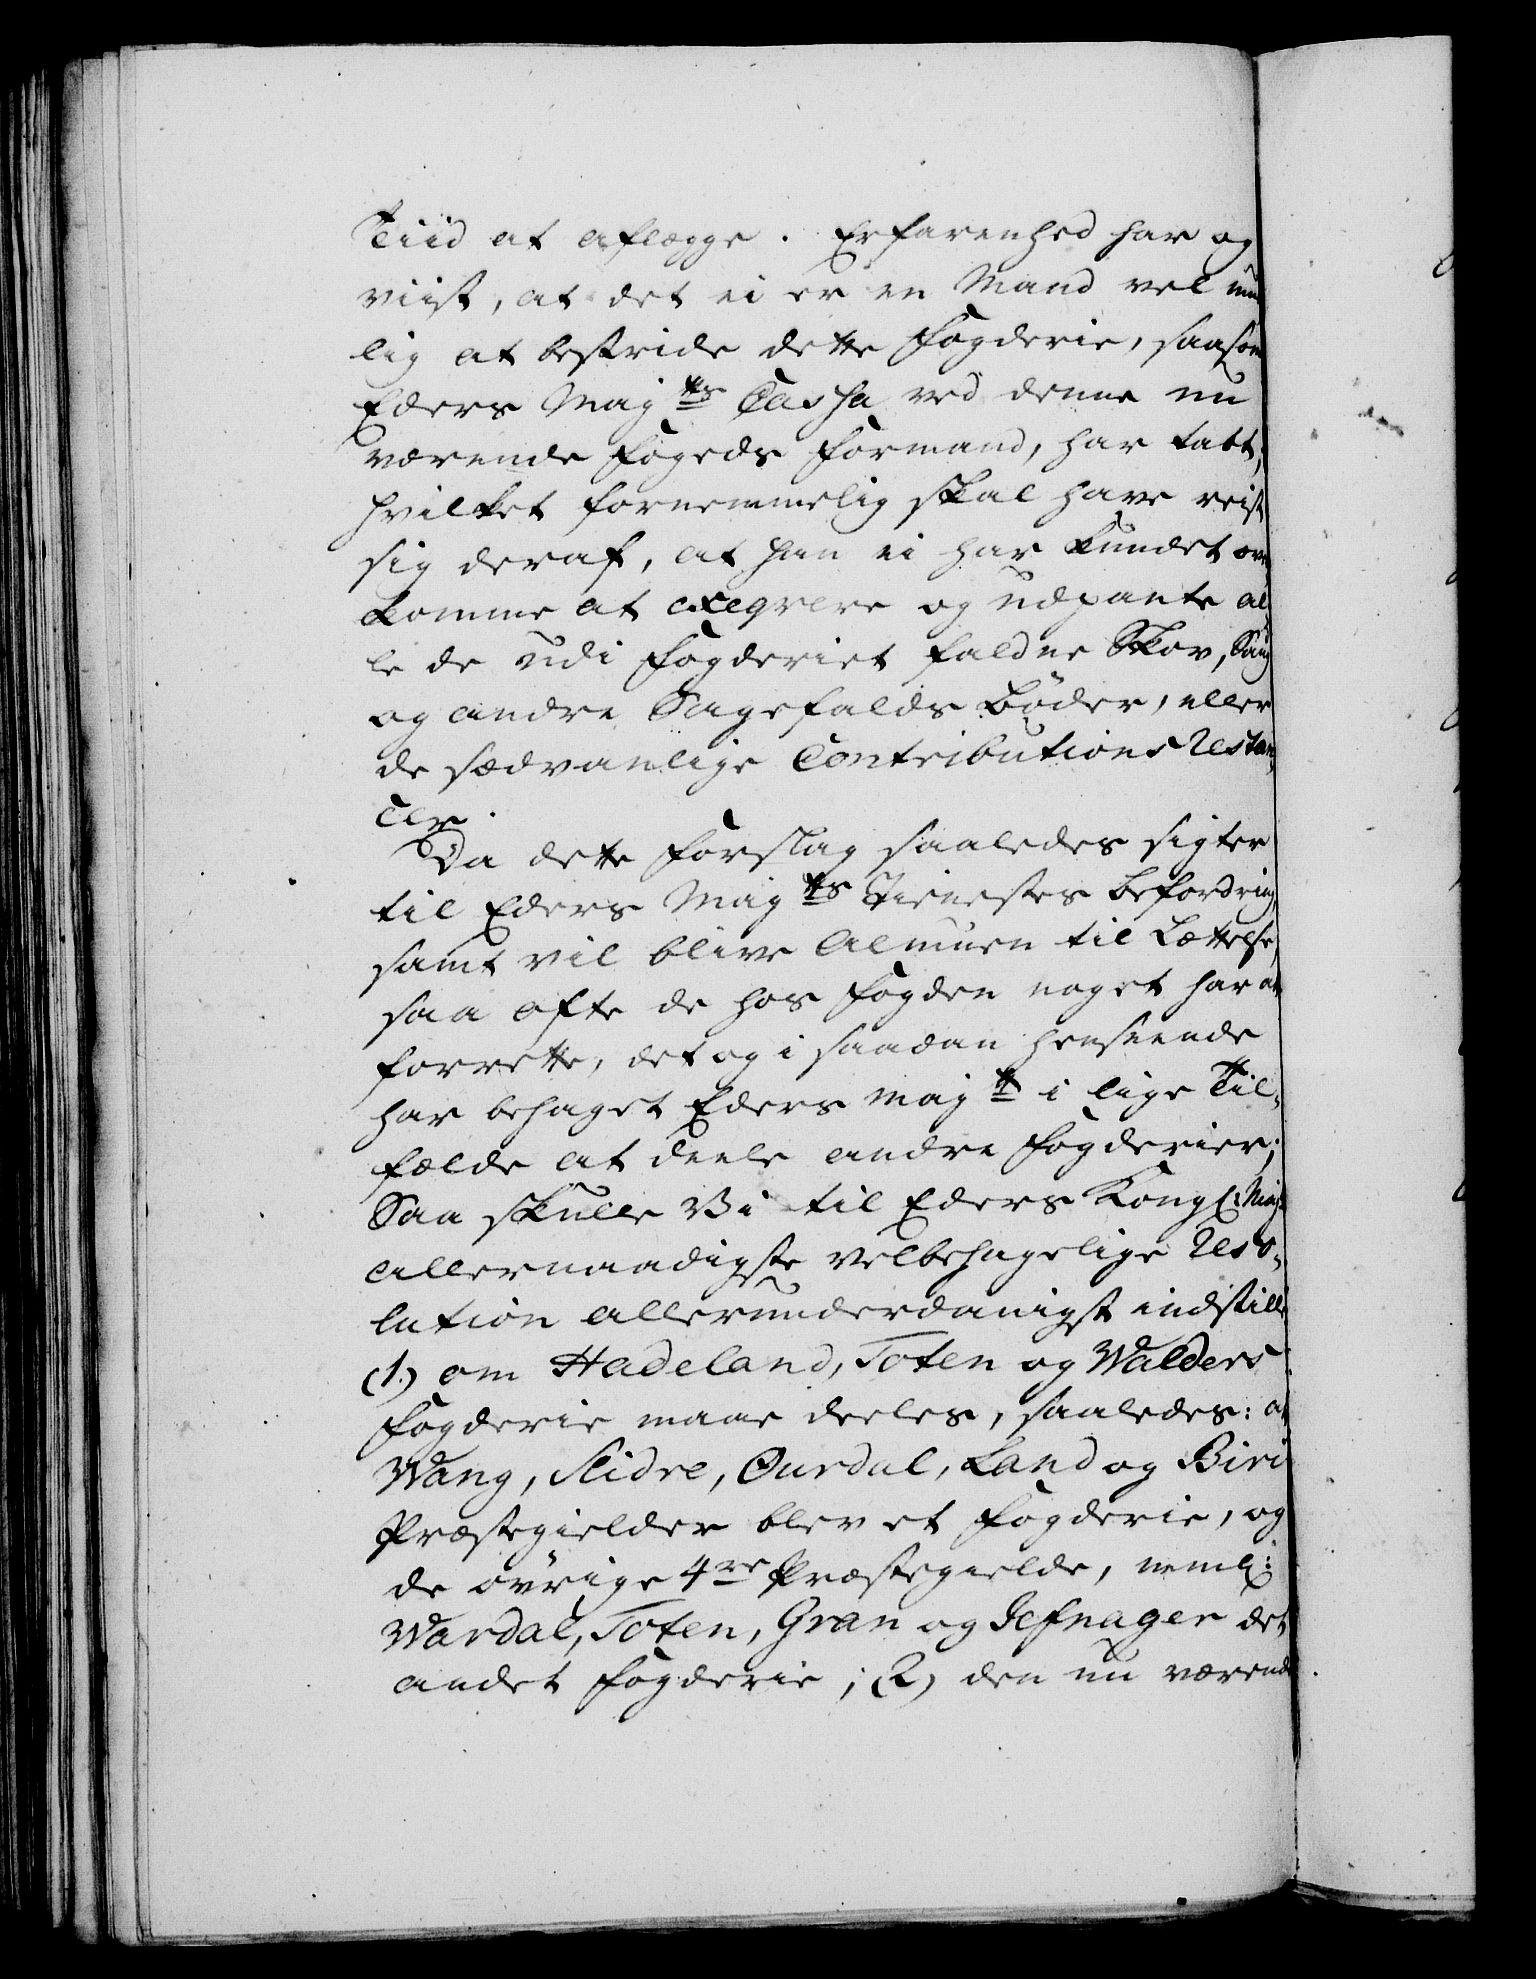 Tiid at aflægge. Erfarenhed har og
viist, at det ei er en Mand vel mue
lig at bestride dette Fogderie, saasom
Eders Maj<sup>ts</sup> Cassa ved denne nu
værende Fogeds Formand, har tabt,
hvilket fornemmelig skal have reist
sig deraf, at han ei har kundet over
komme at exeqvere og udpante al
le de udi Fogderiet faldne Skov, Saug
og andre Sagefalds Bøder, eller
de sædvanlige Contributions Restan,
cer.
Da dette Forslag saaledes sigter
til Eders Maj<sup>ts</sup> Tienestes Befordring,
samt vil blive Almuen til Lettelse,
saa ofte de hos Fogden noget har at
forrette, det og i saadan henseende
har behaget Eders Maj<sup>t</sup> i lige Til,
fælde at deele andre Fogderier;
Saa skulle Vi til Eders Kongl: Majs
allernaadigste velbehagelige Reso,
lution allerunderdanigst indstille
(1.) om Hadeland, Toten og Walders
Fogderie maae deeles, saaledes: at
Wang, Slidre, Ourdal, Land og Biri
Præstegielder blev et Fogderie, og
de øvrige 4<sup>re</sup> Præstegielde, neml:
Wardal, Toten, Gran og Jefnager det
andet Fogderie; (2) den nu værende